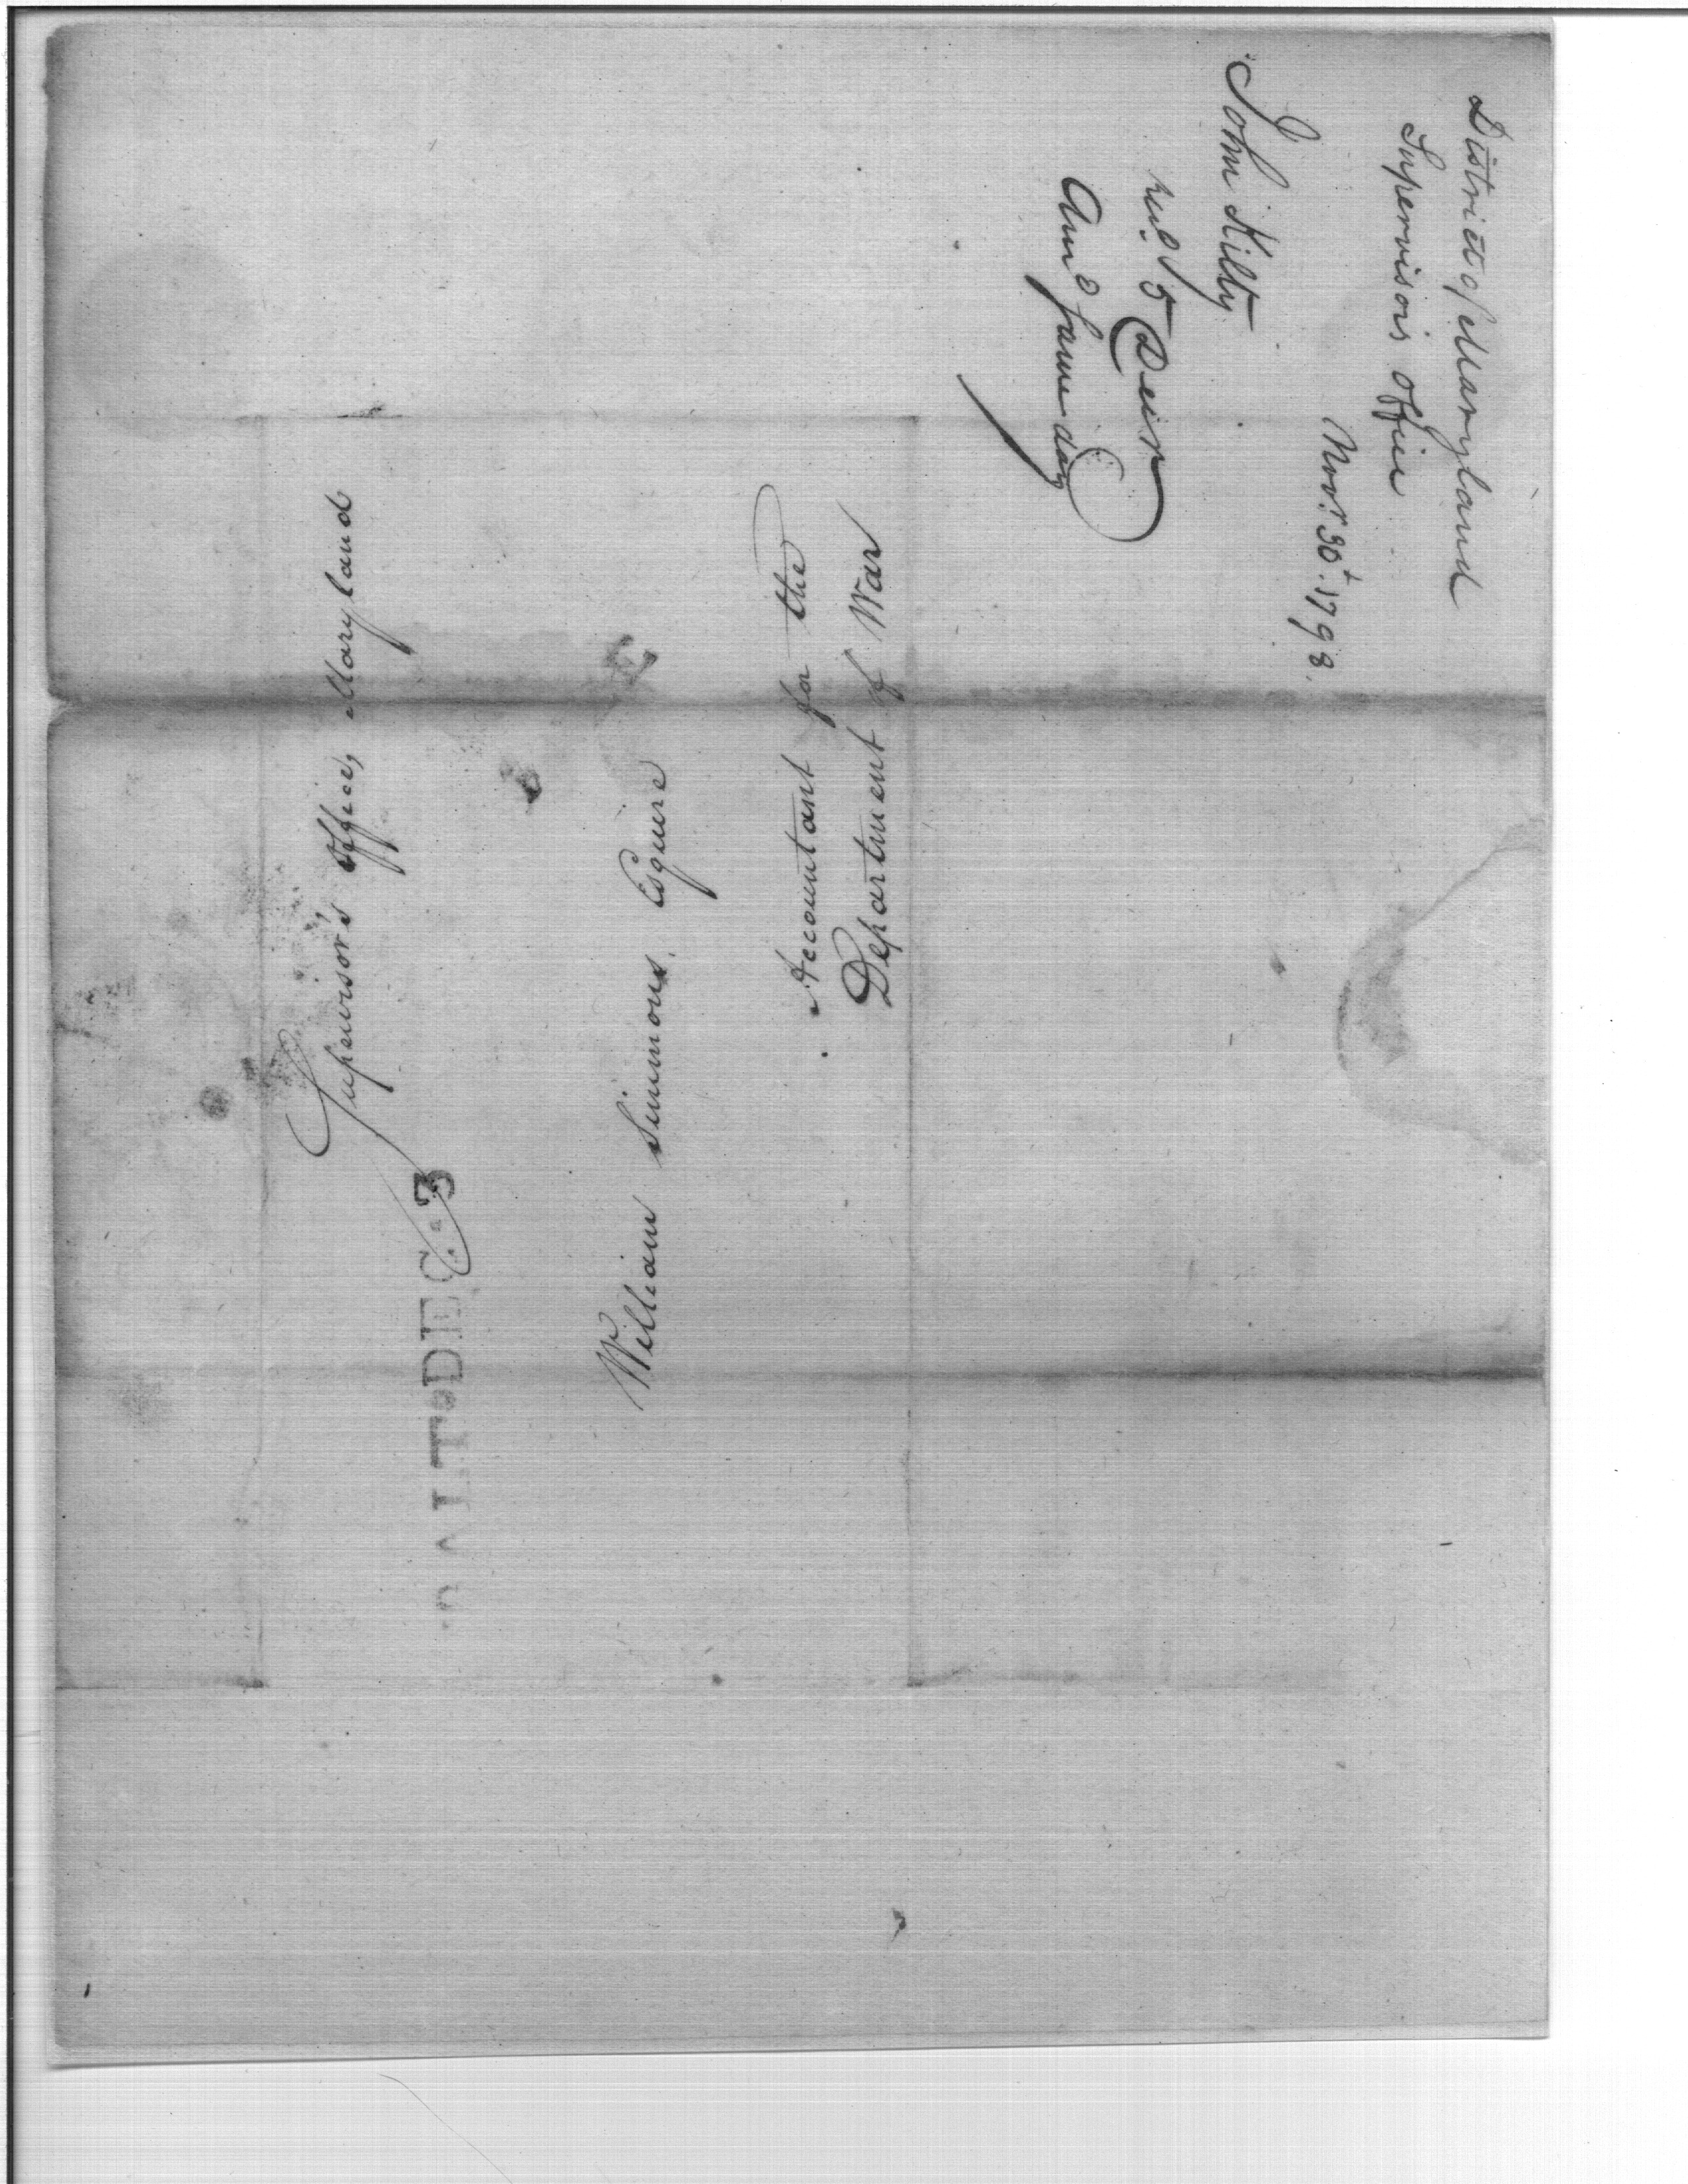 District of Maryland
Supervisors office
Novr. 30t. 1798.
John Kilty
recd. 5 Decr
Ansd same day
Supervisor's Office, Maryland
BALT DEC 3
William Simmons, Esquire
Accountant for the
Department of War